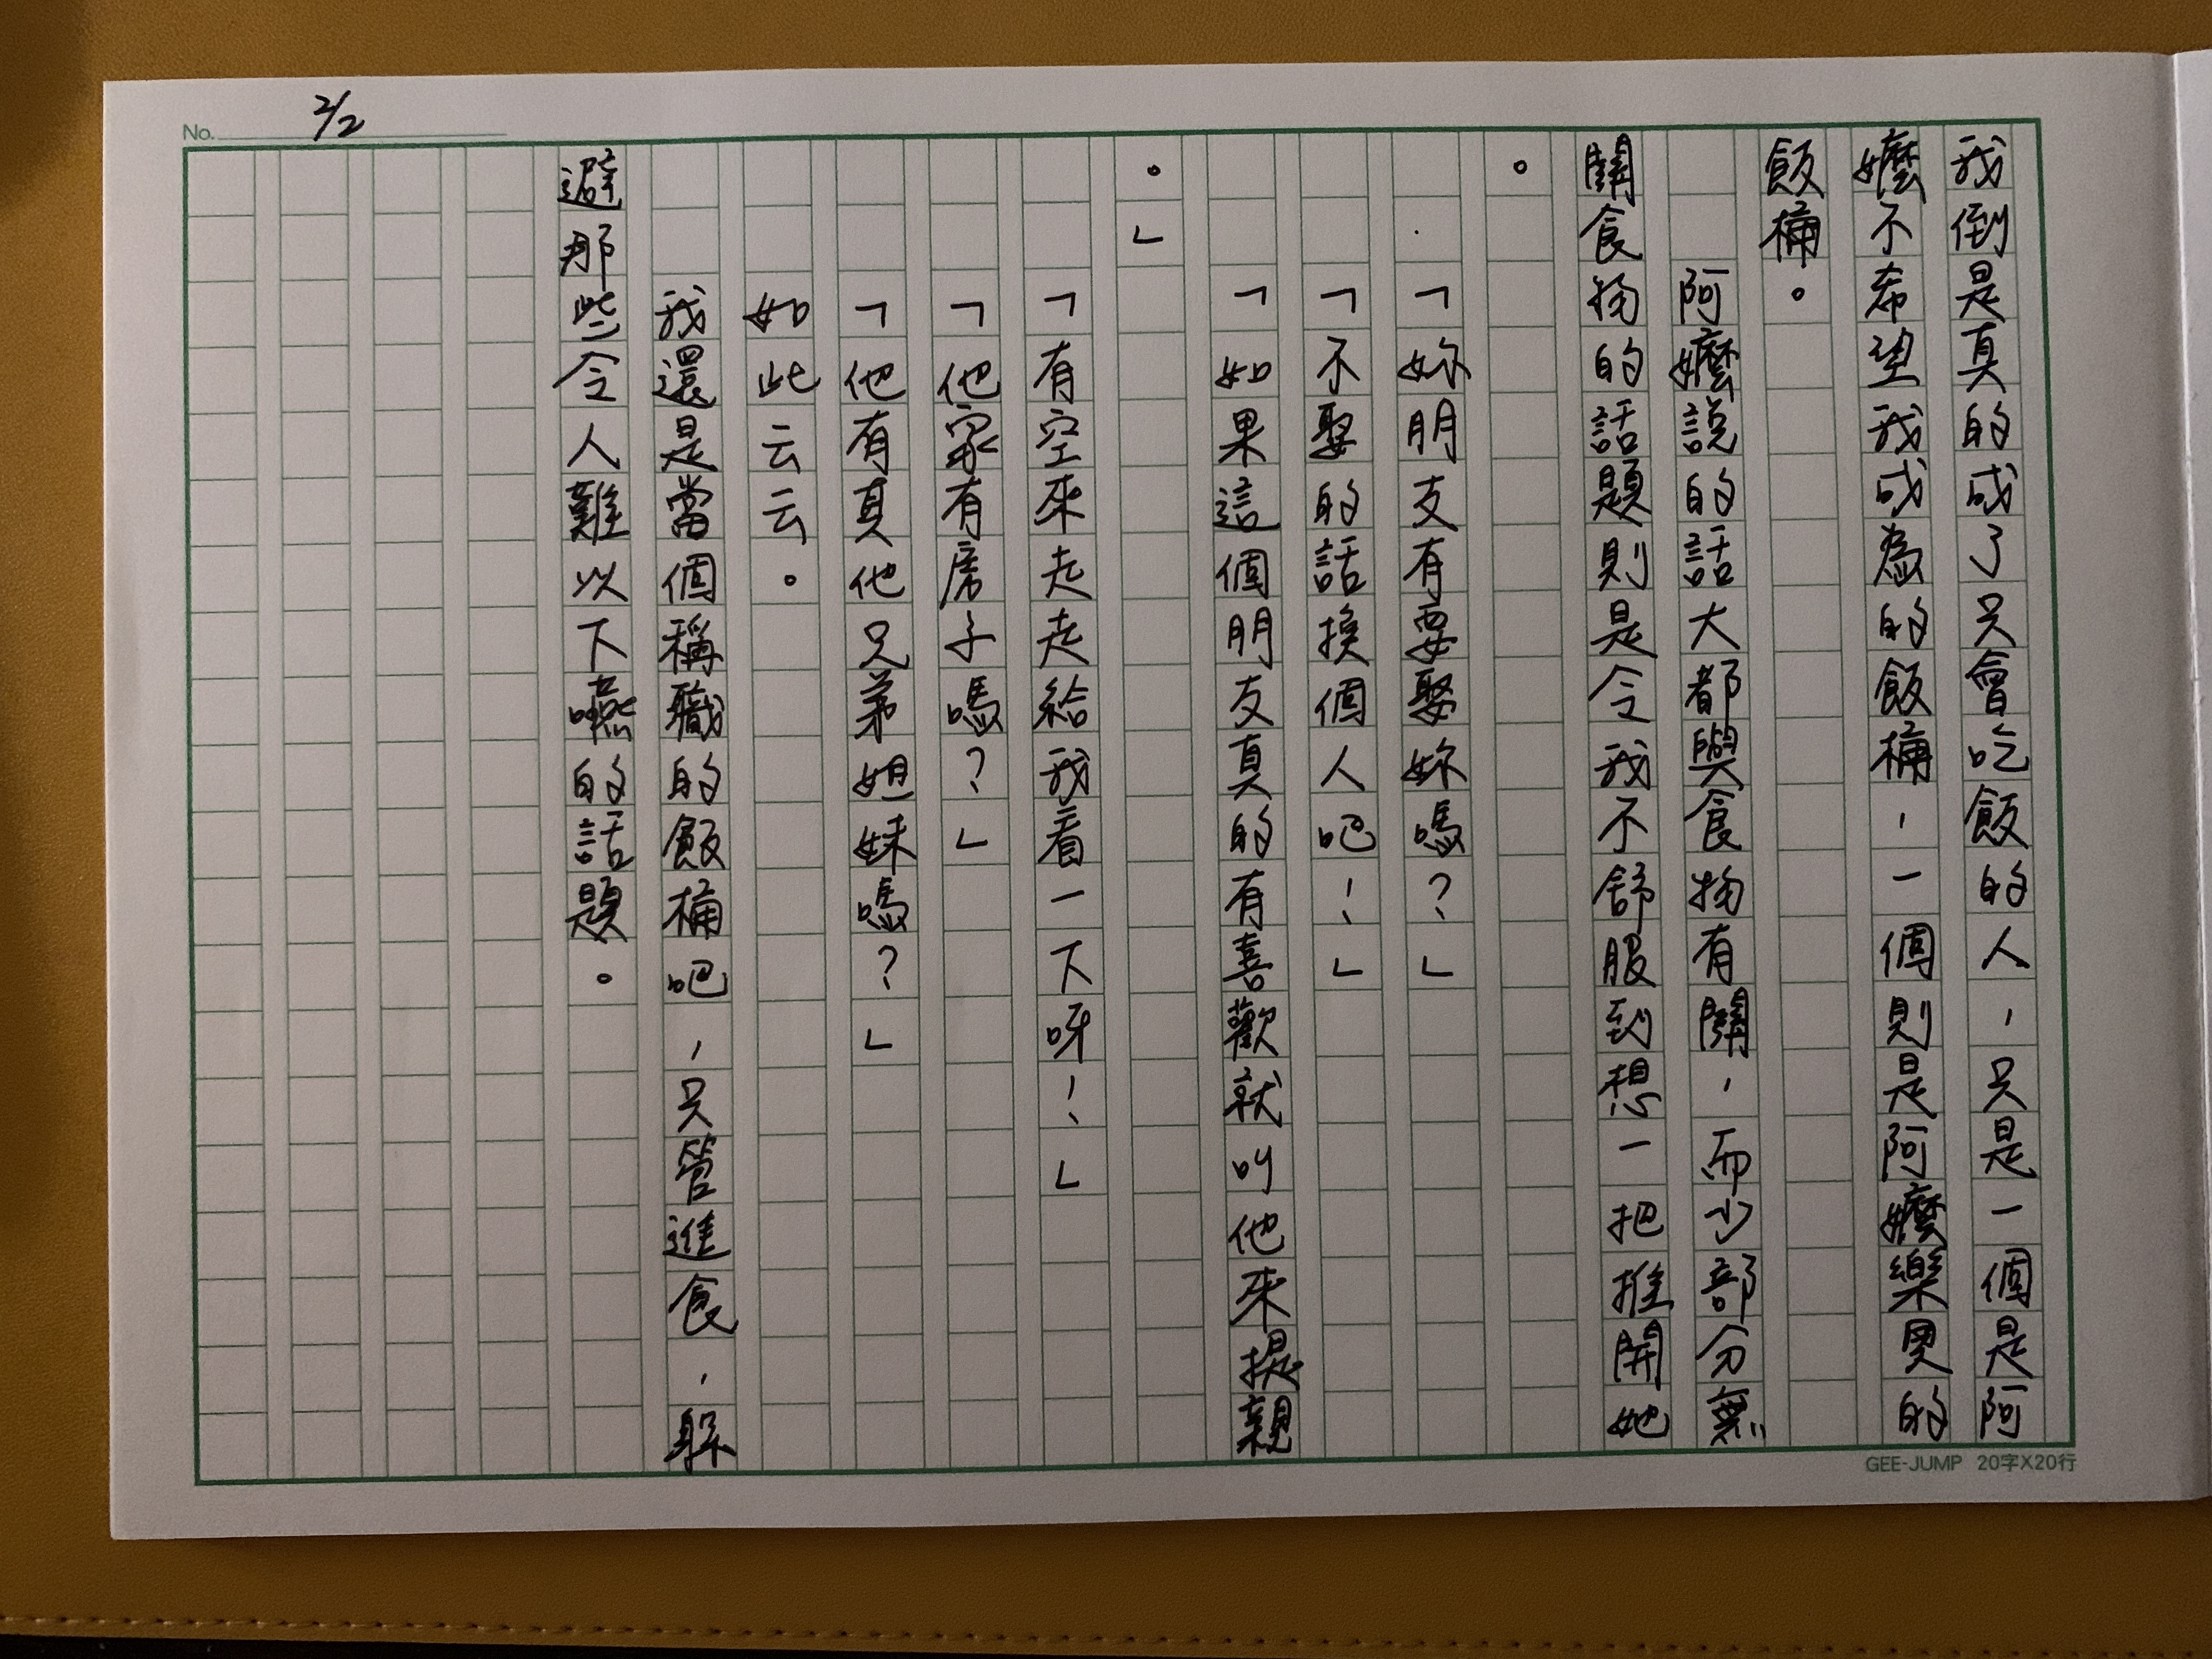 No. 2/2
我倒是真的成了只會吃飯的人，只是一個是阿
嬤不希望我成為的飯桶，一個則是阿嬤樂見的
飯桶。
阿嬤說的話大都與食物有關，而少部分無
關食物的話題則是令我不舒服到想一把推開她
。
「妳朋友有要娶妳嗎？」
「不娶的話換個人吧！」
「如果這個朋友真的有喜歡就叫他來提親
。」
「有空來走走給我看一下呀！」
「他家有房子嗎？」
「他有其他兄弟姐妹嗎？」
如此云云。
我還是當個稱職的飯桶吧，只管進食，躲
避那些令人難以下嚥的話題。
GEE-JUMP 20字X20行